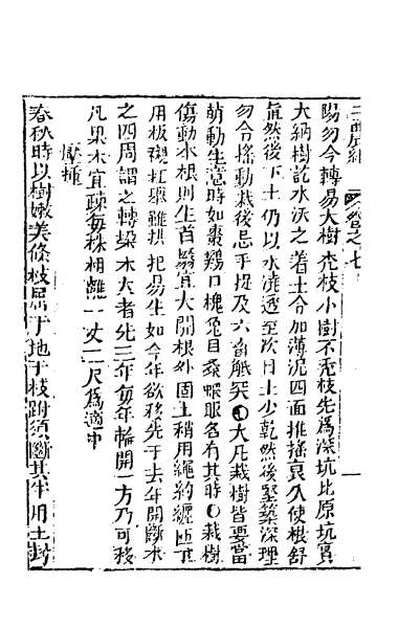 陽勿令轉易大樹禿枝小樹不禿枝先爲深坑比原坑寬
大納樹訖水沃之着土令加薄泥四面推搖良久使根舒
直然後下土仍以水澆透至次日土少乾然後堅築深理
勿令搖動栽後忌手捉及六畜觝突●大凡栽樹皆要當
萌動生意時如棗鷄口槐兔目桑蝦蟇眼各有其時●栽樹
傷動木根則生苜蓿宜大開根外固土稍用繩約纏匝下
用板襯杠舉雖拱把易生如今年欲移先于去年開斷木
之四周謂之轉垛木大者先三年每年輪開一方乃可移
凡果木宜疎每株相離一丈二尺爲適中
壓種
春秋時以樹嫩美條枝屈于地于枝跗須斷其半用土封